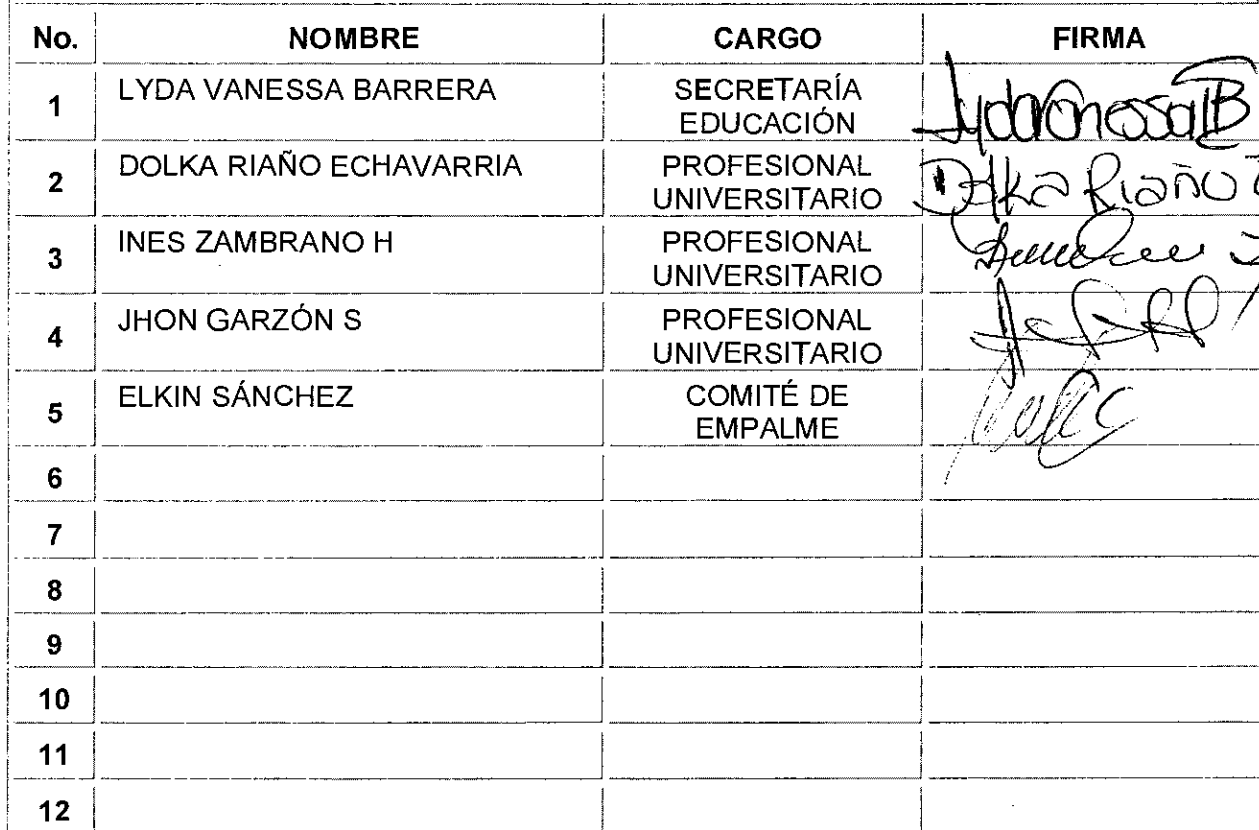 No. NOMBRE CARGO FIRMA
1 LYDA VANESSA BARRERA SECRETARÍA EDUCACIÓN LydaVanessaB
2 DOLKA RIAÑO ECHAVARRIA PROFESIONAL UNIVERSITARIO Dolka Riaño
3 INES ZAMBRANO H PROFESIONAL UNIVERSITARIO
4 JHON GARZÓN S PROFESIONAL UNIVERSITARIO
5 ELKIN SÁNCHEZ COMITÉ DE EMPALME
6
7
8
9
10
11
12